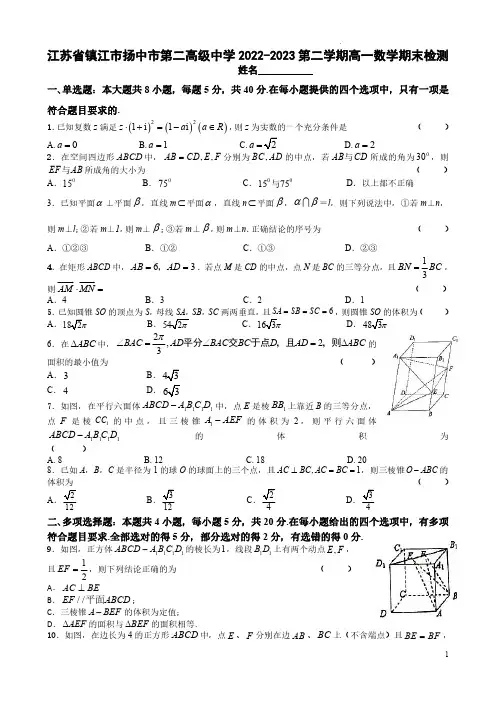 江苏省镇江市扬中市第二高级中学2022-2023第二学期高一数学期末检测
姓名
一、单选题：本大题共8小题，每题5分，共40分.在每小题提供的四个选项中，只有一项是
符合题目要求的.
1.已知复数z满足z·(1+i)²=(1−ai)²(a∈R)，则z为实数的一个充分条件是 （ ）
A.a=0 B.a=1 C.a=√2 D.a=2
2．在空间四边形ABCD中，AB=CD,E,F分别为BC,AD的中点，若AB与CD所成的角为30°，则
EF与AB所成角的大小为 （ ）
A．15⁰ B．75⁰ C．15⁰与75⁰ D．以上都不正确
3．已知平面α⊥平面β，直线m⊂平面α，直线n⊂平面β，α∩β=l．则下列说法中，①若m⊥n，
则m⊥l；②若m⊥l，则m⊥β；③若m⊥β，则m⊥n．正确结论的序号为 （ ）
A．①②③ B．①② C．①③ D．②③
4. 在矩形ABCD中，AB=6，AD=3．若点M是CD的中点，点N是BC的三等分点，且BN=1/3BC，
则AM·MN= （ ）
A．4 B．3 C．2 D．1
5.已知圆锥SO的顶点为S，母线SA，SB，SC两两垂直，且SA=SB=SC=6，则圆锥SO的体积为（ ）
A．18√2π B．54√2π C．16√3π D．48√3π
6．在ΔABC中，∠BAC=2π/3,AD平分∠BAC交BC于点D，且AD=2，则ΔABC的
面积的最小值为 （ ）
A．3 B．4√3
C．4 D．6√3
7．如图，在平行六面体ABCD−A₁B₁C₁D₁中，点E是棱BB₁上靠近B的三等分点，
点F是棱CC₁的中点，且三棱锥A₁−AEF的体积为2，则平行六面体
ABCD−A₁B₁C₁D₁ 的 体 积 为
（ ）
A.8 B.12 C.18 D.20
8．已知A，B，C是半径为1的球O的球面上的三个点，且AC⊥BC,AC=BC=1，则三棱锥O−ABC的
体积为 （ ）
A．√2/12 B．√3/12 C．√2/4 D．√3/4
二、多项选择题：本题共4小题，每小题5分，共20分.在每小题给出的四个选项中，有多项
符合题目要求.全部选对的得5分，部分选对的得2分，有选错的得0分.
9．如图，正方体ABCD−A₁B₁C₁D₁的棱长为1，线段B₁D₁上有两个动点E,F，
且EF=1/2，则下列结论正确的为 （ ）
A．AC⊥BE
B．EF//平面ABCD；
C．三棱锥A−BEF的体积为定值；
D．ΔAEF的面积与ΔBEF的面积相等.
10．如图，在边长为4的正方形ABCD中，点E、F分别在边AB、BC上（不含端点）且BE=BF，
1